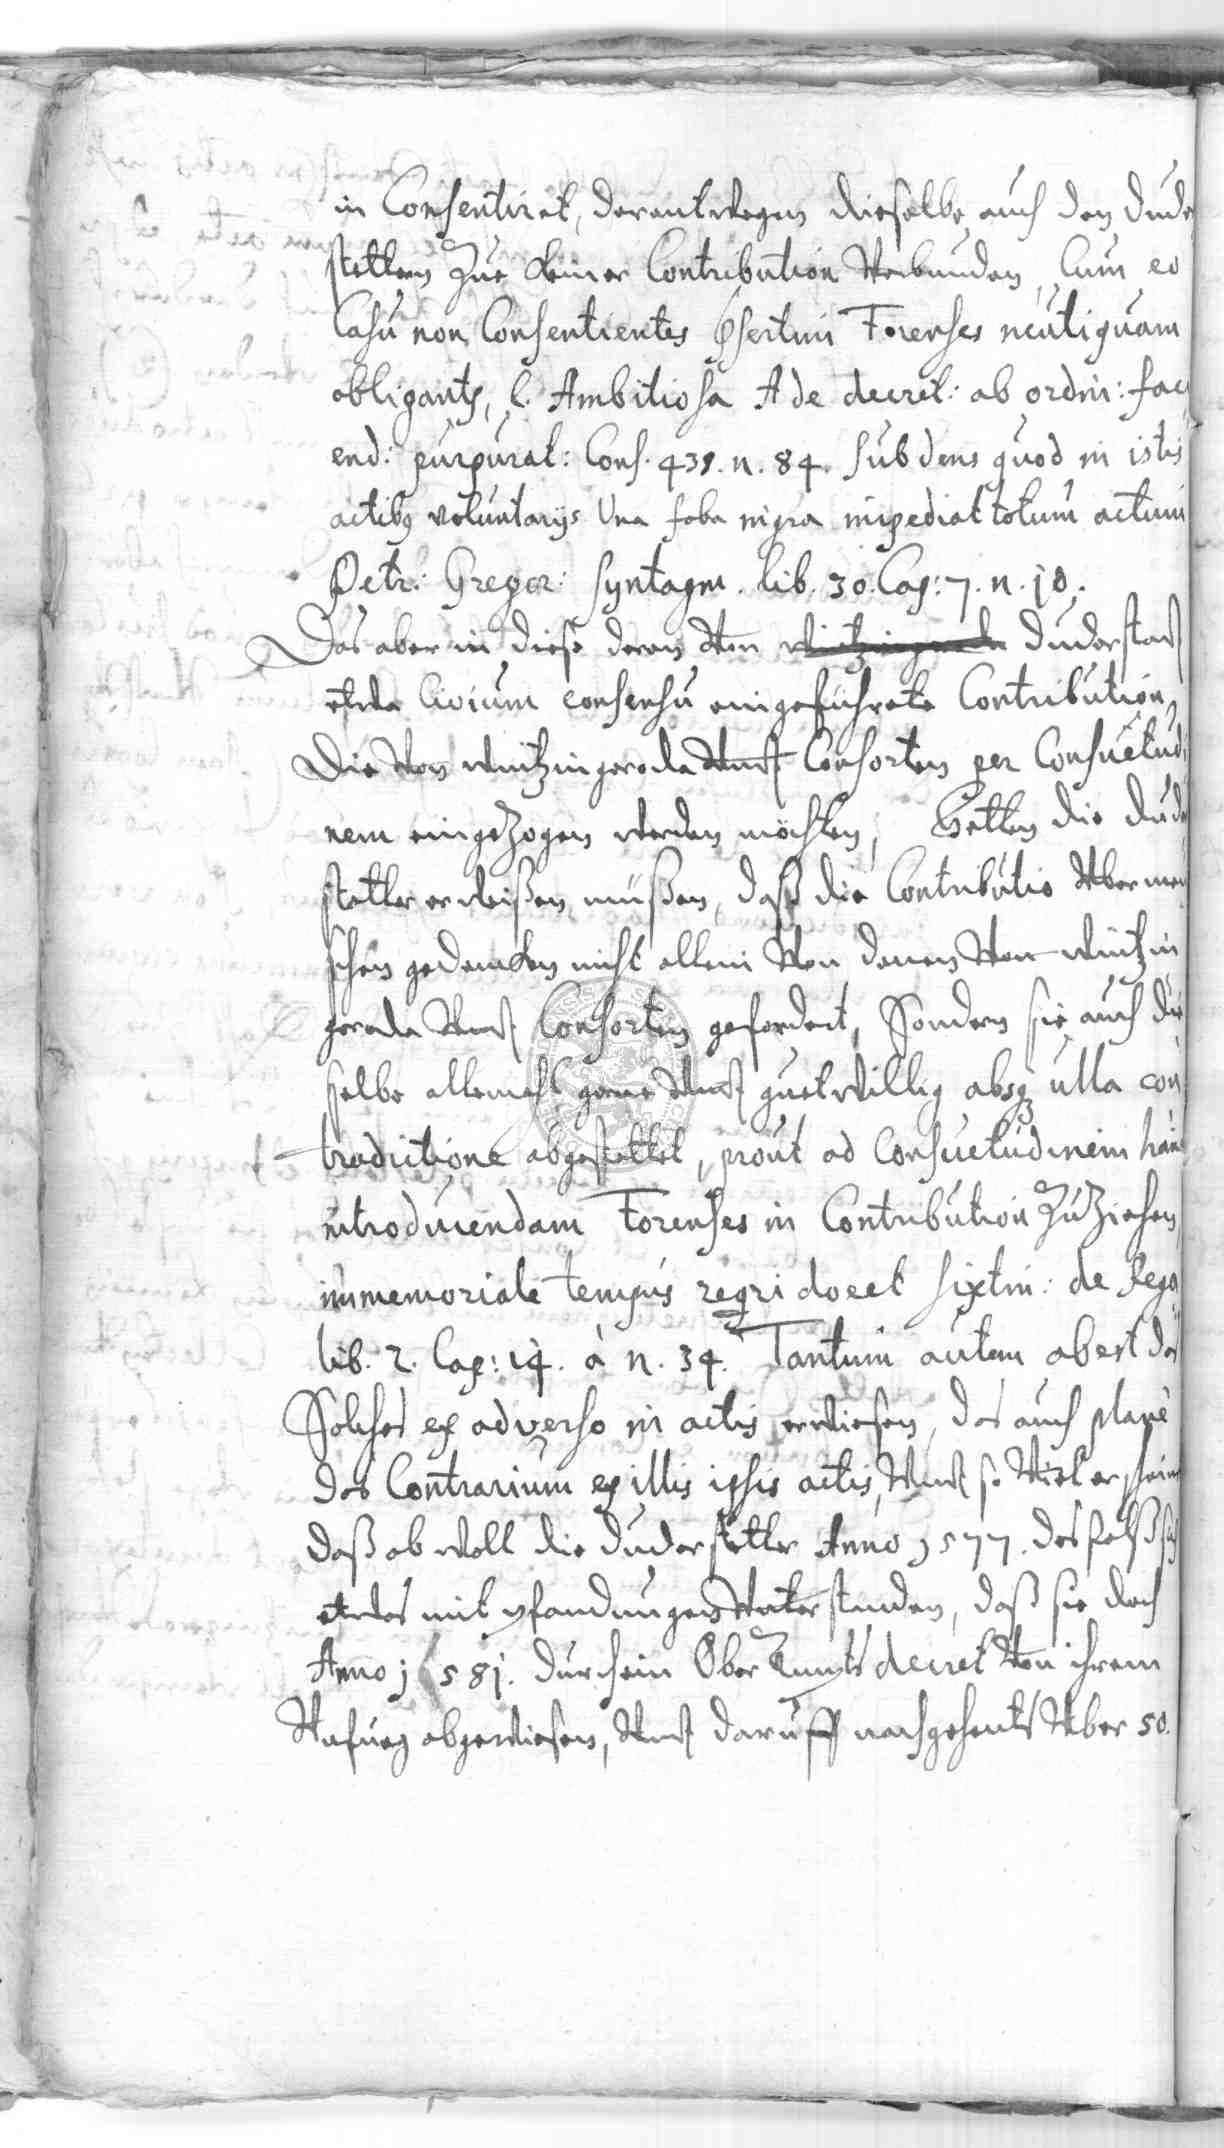 in Consentiret, derentwegen dieselbe auch den Dude
stettern zue keiner Contribution Verbunden, Cum eo
Casu non Consentientes psertim Forenses neutiquam
obligant, l. Ambitiosa ff de decret: ab ordin: fac
end: purpurat: Cons. 431. n. 84. subdens quod in istis
actibq voluntarijs Una faba nigra impediat totum actum
Petr: Gregor: Syntagm. lib. 30. Cap: 7. n. 10.
Das aber in diese deren Von Duderstatt
etwa Civium consensu eingeführete Contribution,
die Von Wintzingeroda Undt Consorten per Consuetudi
nem eingezogen werden möchten, Hetten die Dude
stetter erweißen müßen, daß die Contributio Uber men
schen gedencken nicht allein Von denen Von Wintzin
geroda Undt Consorten gefordert, Sondern sie auch die
selbe allemahl gerne Undt guetwillig absq ulla con
tradictione abgestattet, prout ad Consuetudinem hanc
introducendam Forenses in Contribution zu ziehen,
immemoriale tempus reqri docet Sixtin: de Rega
lib. 2. Cap: 14. à n. 34. Tantum autem abest das
Solches ex adverso in actis erwiesen, das auch planè
das Contrarium ex illis ipsis actis, Undt so Viel erschein
daß ob woll die Duderstetter Anno 1577. desfalß sich
etwas mit pfandungen Unterstanden, daß sie doch
Anno 1581. durch ein Ober Ampts decret Von ihrem
Unfueg abgewiesen, Undt daruff nachgehents Uber 50.